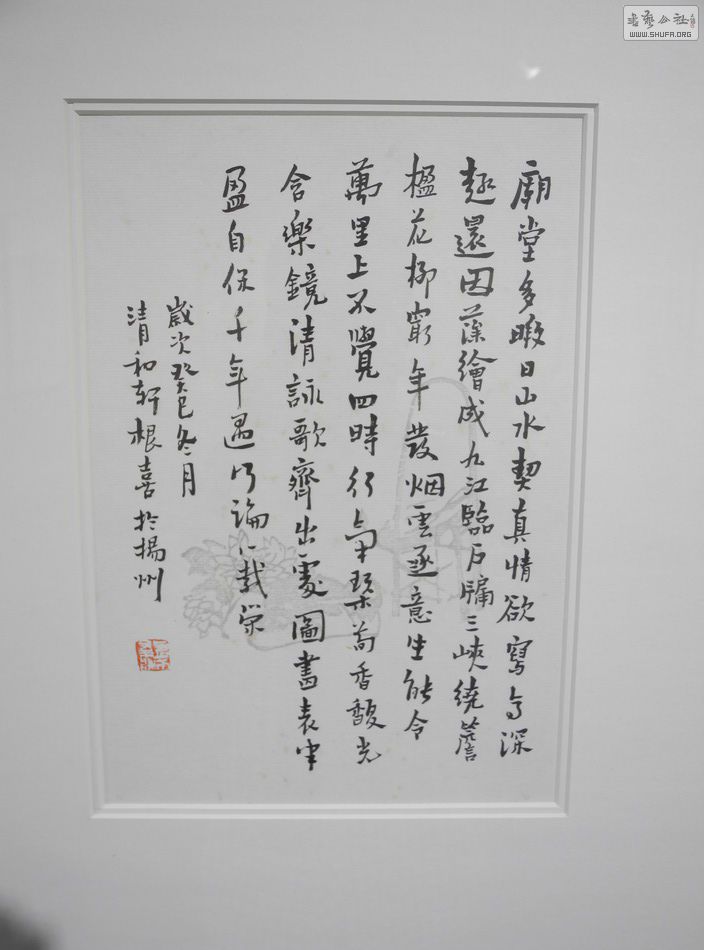 廟堂多暇日山水契真情欲寫高深
趣還因藻繪成九江臨戶牖三峽繞簷
楹花柳窮年發烟雲逐意生能令
萬里上不覺四時行氣染荀香馥光
含樂鏡清詠歌齊出處圖畫表中
盈自保千年遇何論八載榮
歲次癸巳冬月
清和軒根喜於揚州
書藝公社
WWW.SHUFA.ORG